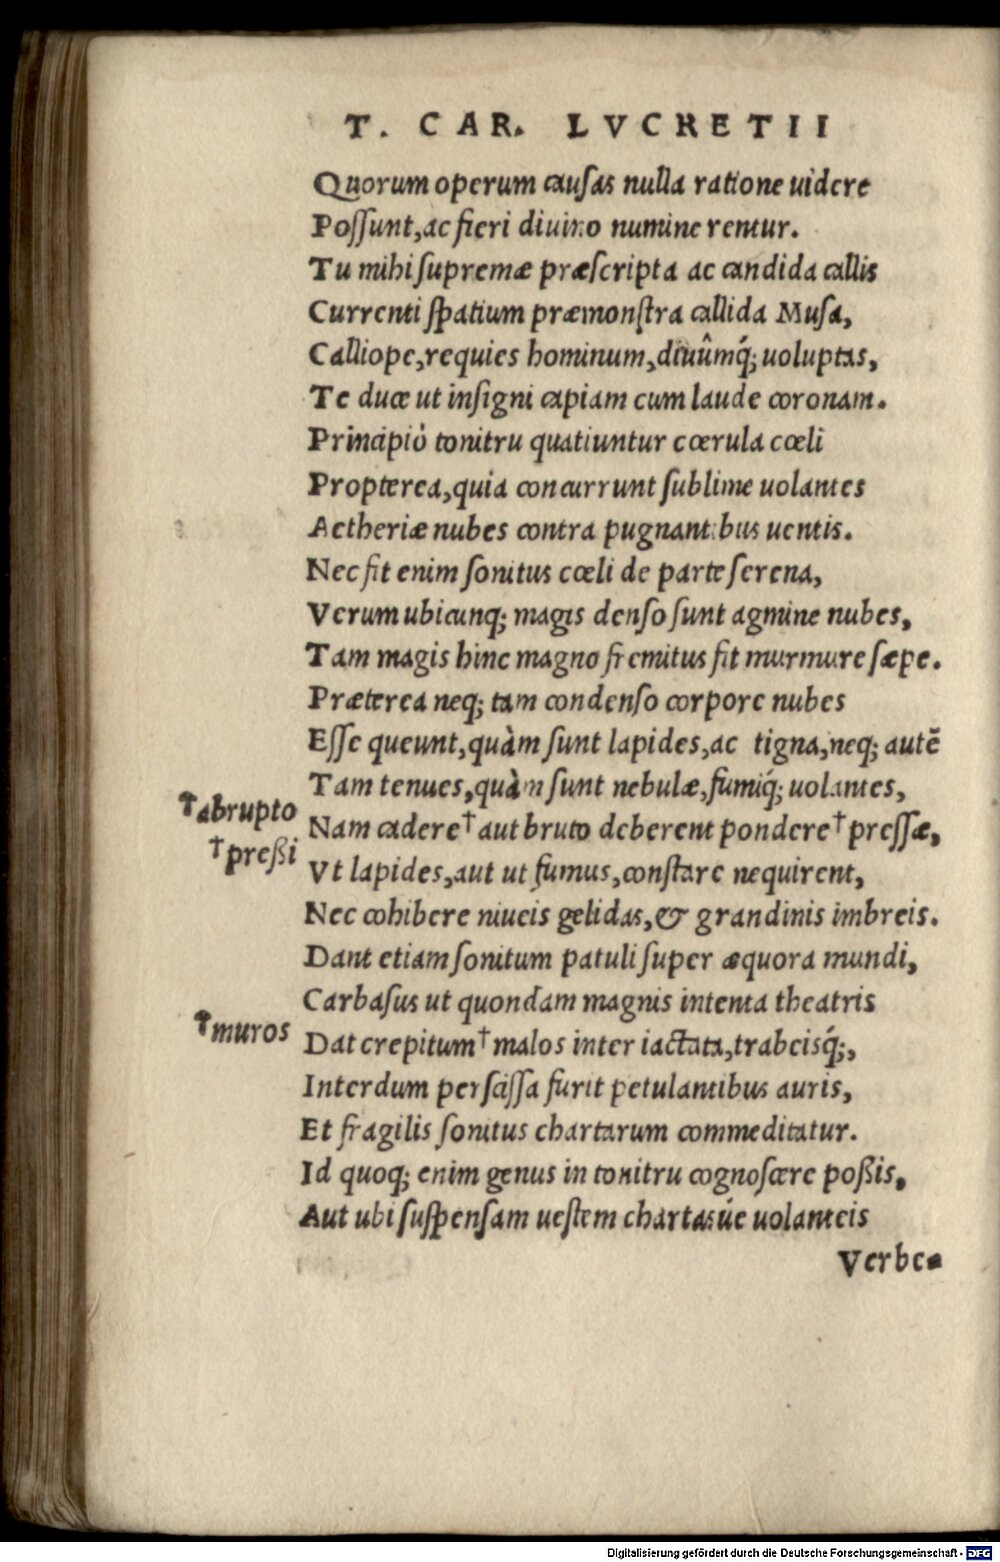 T. CAR. LVCRETII
Quorum operum causas nulla ratione uidere
Possunt, ac fieri diuino numine rentur.
Tu mihi supremæ præscripta ac candida callis
Currenti spatium præmonstra callida Musa,
Calliope, requies hominum, diuûmq́; uoluptas,
Te duce ut insigni capiam cum laude coronam.
Principiò tonitru quatiuntur cœrula cœli
Propterea, quia concurrunt sublime uolantes
Aetheriæ nubes contra pugnantibus uentis.
Nec fit enim sonitus cœli de parte serena,
Verum ubicunq; magis denso sunt agmine nubes,
Tam magis hinc magno fremitus fit murmure sæpe.
Præterea neq; tam condenso corpore nubes
Esse queunt, quàm sunt lapides, ac tigna, neq; autē
Tam tenues, quàm sunt nebulæ, fumiq́; uolantes,
†abrupto
Nam cadere† aut bruto deberent pondere† pressæ,
†preßi
Vt lapides, aut ut fumus, constare nequirent,
Nec cohibere niueis gelidas, & grandinis imbreis.
Dant etiam sonitum patuli super æquora mundi,
Carbasus ut quondam magnis intenta theatris
†muros
Dat crepitum† malos inter iactata, trabeisq́;,
Interdum perscissa furit petulantibus auris,
Et fragilis sonitus chartarum commeditatur.
Id quoq; enim genus in tonitru cognoscere poßis,
Aut ubi suspensam uestem chartasúe uolanteis
Verbe-
Digitalisierung gefördert durch die Deutsche Forschungsgemeinschaft - DFG